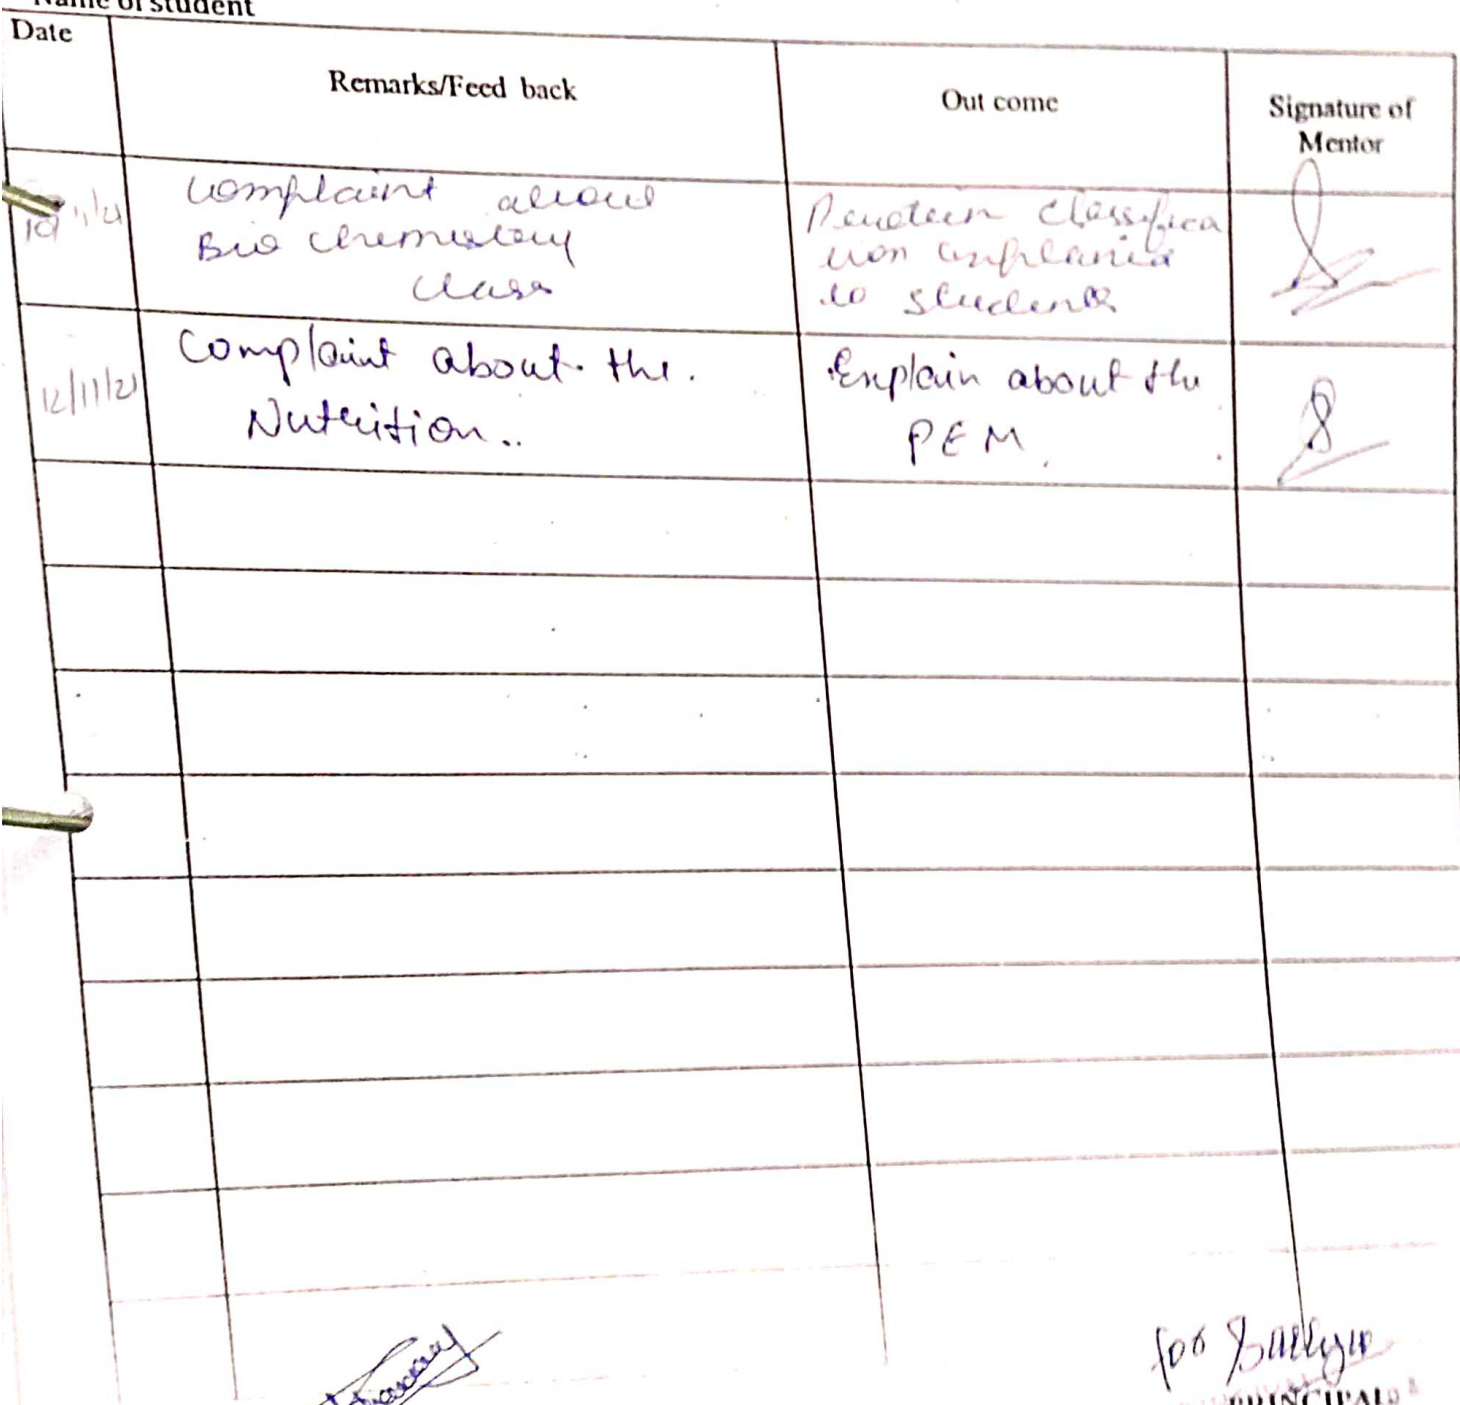 Name of student
Date
Remarks/Feed back
Out come
Signature of
Mentor
10/11/21
Complaint about
Bio chemistry
class
Protein classifica
tion explained
to students
12/11/21
Complaint about the.
Nutrition..
Explain about the
PEM.
for
PRINCIPAL